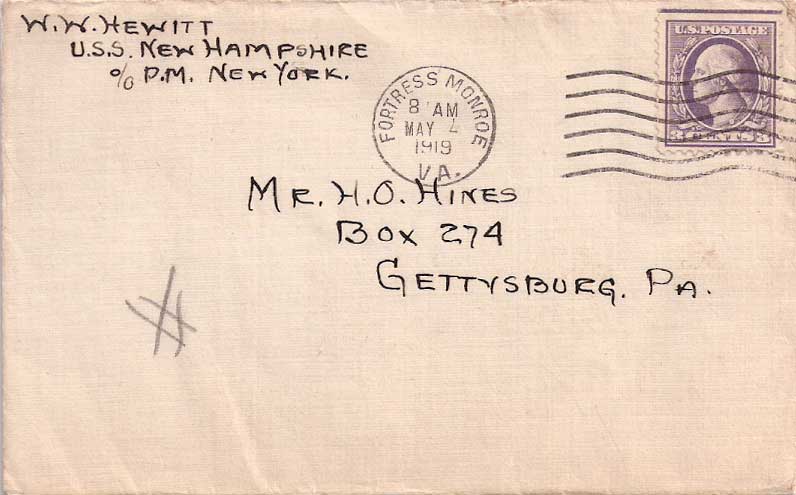 W. W. HEWITT
U.S.S. NEW HAMPSHIRE
c/o P.M. NEW YORK.
FORTRESS MONROE
8 AM
MAY 4
1919
VA.
U.S. POSTAGE
3 CENTS 3
MR. H. O. HINES
BOX 274
GETTYSBURG, PA.